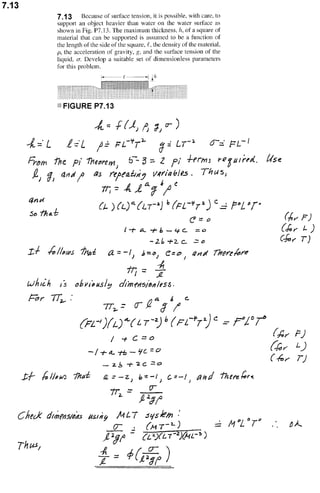 7.13
7.13 Because of surface tension, it is possible, with care, to
support an object heavier than water on the water surface as
shown in Fig. P7.13. The maximum thickness, h, of a square of
material that can be supported is assumed to be a function of
the length of the side of the square, ℓ, the density of the material,
ρ, the acceleration of gravity, g, and the surface tension of the
liquid, σ. Develop a suitable set of dimensionless parameters
for this problem.
ℓ h
FIGURE P7.13
h = f(ℓ, ρ, g, σ)
h ≐ L ℓ ≐ L ρ ≐ FL⁻⁴T² g ≐ LT⁻² σ ≐ FL⁻¹
From the pi theorem, 5-3 = 2 pi terms required. Use
ℓ, g, and ρ as repeating variables. Thus,
π₁ = h ℓᵃ gᵇ ρᶜ
and
(L)(L)ᵃ(LT⁻²)ᵇ(FL⁻⁴T²)ᶜ ≐ F⁰L⁰T⁰
so that
c = 0 (for F)
1 + a + b - 4c = 0 (for L)
-2b + 2c = 0 (for T)
It follows that a = -1, b = 0, c = 0, and therefore
π₁ = h/ℓ
which is obviously dimensionless.
For π₂:
π₂ = σ ℓᵃ gᵇ ρᶜ
(FL⁻¹)(L)ᵃ(LT⁻²)ᵇ(FL⁻⁴T²)ᶜ ≐ F⁰L⁰T⁰
1 + c = 0 (for F)
-1 + a + b - 4c = 0 (for L)
-2b + 2c = 0 (for T)
It follows that a = -2, b = -1, c = -1, and therefore
π₂ = σ/ℓ²gρ
Check dimensions using MLT system:
σ/ℓ²gρ ≐ (MT⁻²)/(L²)(LT⁻²)(ML⁻³) ≐ M⁰L⁰T⁰ ∴ OK
Thus,
h/ℓ = φ(σ/ℓ²gρ)